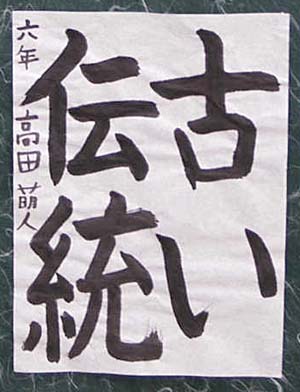 古い
伝統
六年 高田萌人